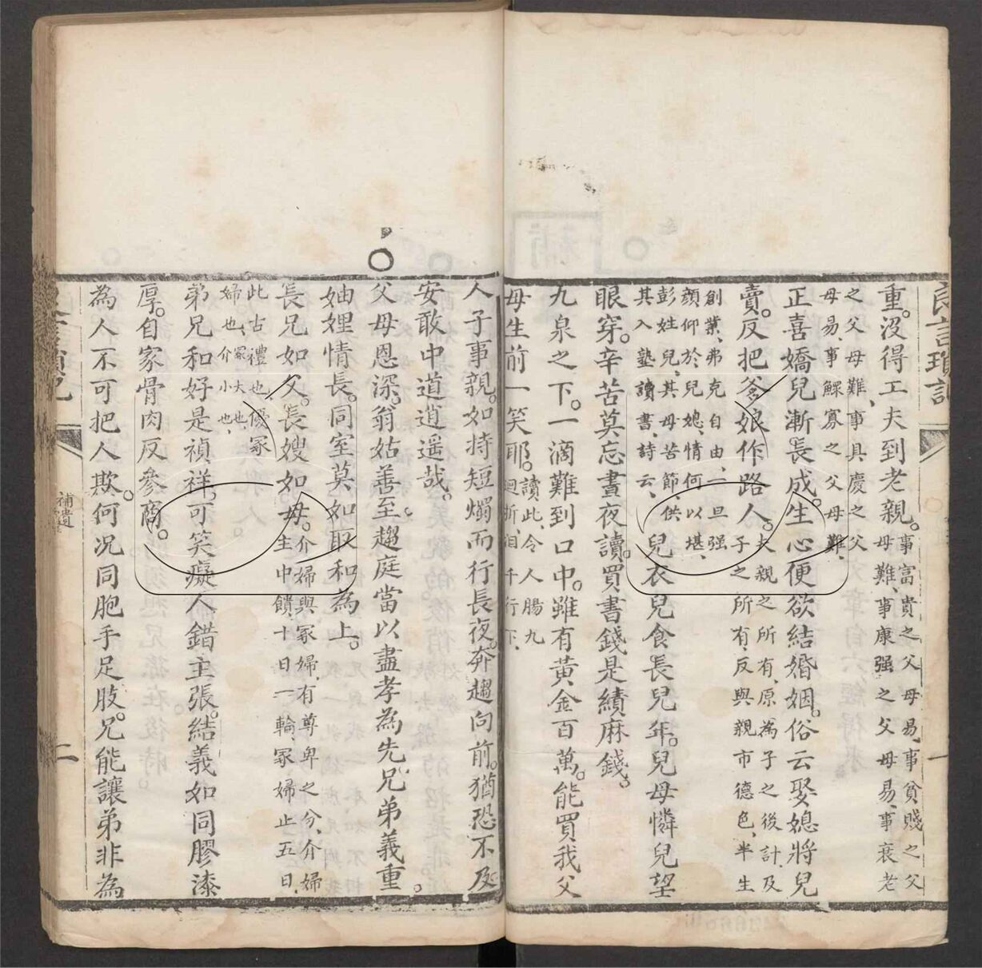 重。沒得工夫到老親。事富貴之父母易、事貧賤之父
母難、事康强之父母易、事衰老
之父母難、事具慶之父
母易、事鰥寡之父母難、
正喜嬌兒漸長成。生心便欲結婚姻。俗云娶媳將兒
賣。反把爹娘作路人。夫親之所有、原為子之後計、及
子之所有、反與親市德色、半生
創業、弗克自由、一旦强
顏仰於兒媳、情何以堪、
彭姓兒、其母苦節、供
其入塾讀書、詩云、兒衣兒食長兒年。兒母憐兒望
眼穿。辛苦莫忘晝夜讀。買書錢是績麻錢。
九泉之下。一滴難到口中。雖有黃金百萬。能買我父
母生前一笑耶。讀此、令人腸九
迴、折泪千行下、
人子事親。如持短燭而行長夜。奔趨向前。猶恐不及
安敢中道逍遥哉。
父母恩深。翁姑善。至趨庭當以盡孝為先。兄弟義重。
妯娌情長。同室莫如取和為上。
長兄如父。長嫂如母。介婦與冢婦、有尊卑之分、介婦
主中饋、十日一輪、冢婦止五日、
此古禮也、
婦也、冢大也、介小也、
弟兄和好是禎祥。可笑癡人錯主張。結義如同膠漆
厚。自家骨肉反參商。
為人不可把人欺。何况同胞手足肢。兄能讓弟非為
補遺
一
二